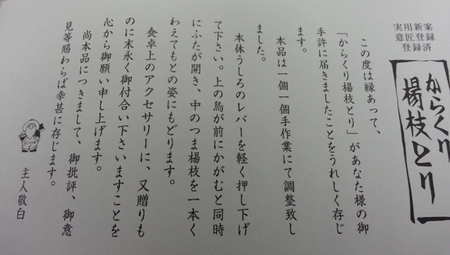 実用新案
意匠登録
登録済
からくり
楊枝とり
この度は縁あって、
「からくり楊枝とり」があなた様の御
手許に届きましたことをうれしく存じ
ます。
本品は一個一個手作業にて調整致し
ました。
本体うしろのレバーを軽く押し下げ
て下さい。上の鳥が前にかがむと同時
にふたが開き、中のつま楊枝を一本く
わえてもとの姿にもどります。
食卓上のアクセサリーに、又贈りも
のに末永く御付合い下さいますことを
心から御願い申し上げます。
尚本品につきまして、御批評、御意
見等賜わらば幸甚に存じます。
主人敬白